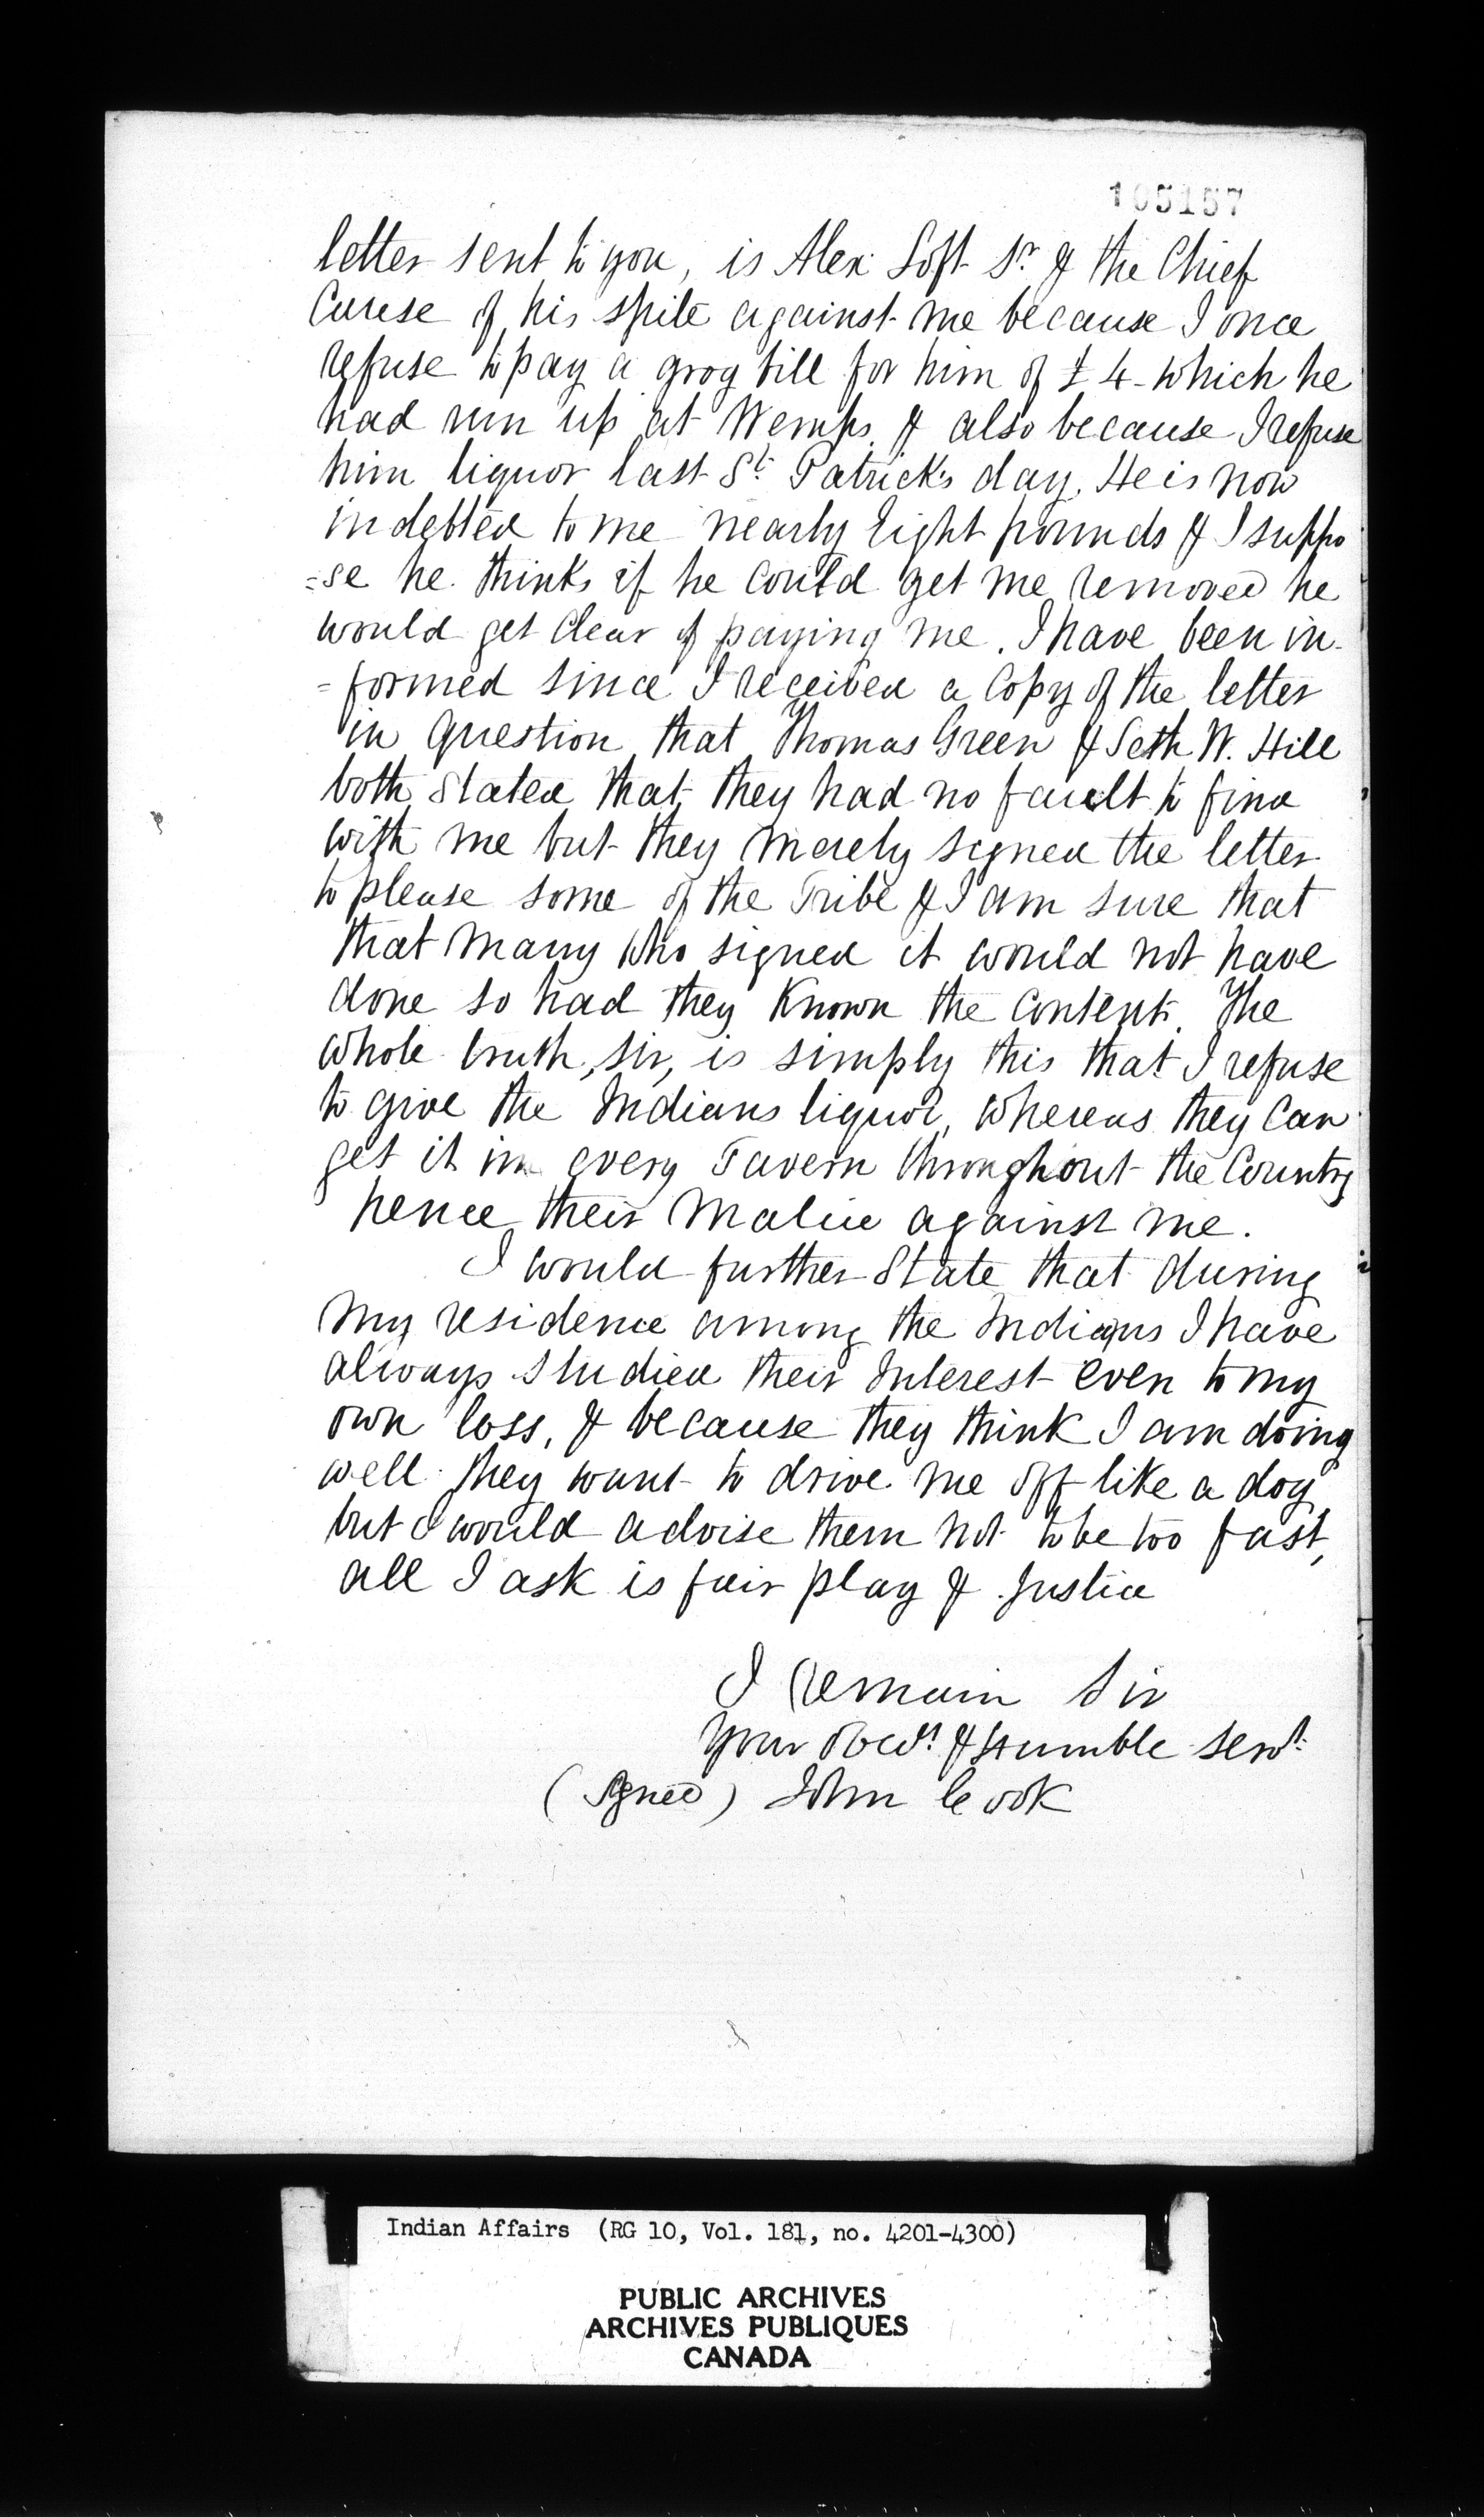 105157
letter sent to you, is Alex: Loft Sr. & the Chief
Curese of his spite against me because I once
refuse to pay a grog bill for him of £4 - which he
had run up at Wemps. & also because I refuse
him liquor last St. Patrick's day. He is now
indebted to me nearly Eight pounds & I suppo
=se he thinks if he could get me removed he
would get Clear of paying me. I have been in-
=formed since I received a Copy of the letter
in Question that Thomas Green & Seth W. Hill
both Stated that they had no fault to find
with me but they merely signed the letter
to please some of the Tribe & I am sure that
that many who signed it would not have
done so had they Known the Contents. The
whole truth, sir, is simply this that I refuse
to give the Indians liquor, whereas they Can
get it in every Tavern throughout the Country
hence their Malice against me.
I would further State that during
my residence among the Indians I have
always studied their Interest even to my
own loss, & because they think I am doing
well they want to drive me off like a dog,
but I would advise them not to be too fast,
all I ask is fair play & Justice
I Remain Sir
Your Obedt. & Humble servt.
(Signed) John Cook
Indian Affairs (RG 10, Vol. 181, no. 4201-4300)
PUBLIC ARCHIVES
ARCHIVES PUBLIQUES
CANADA